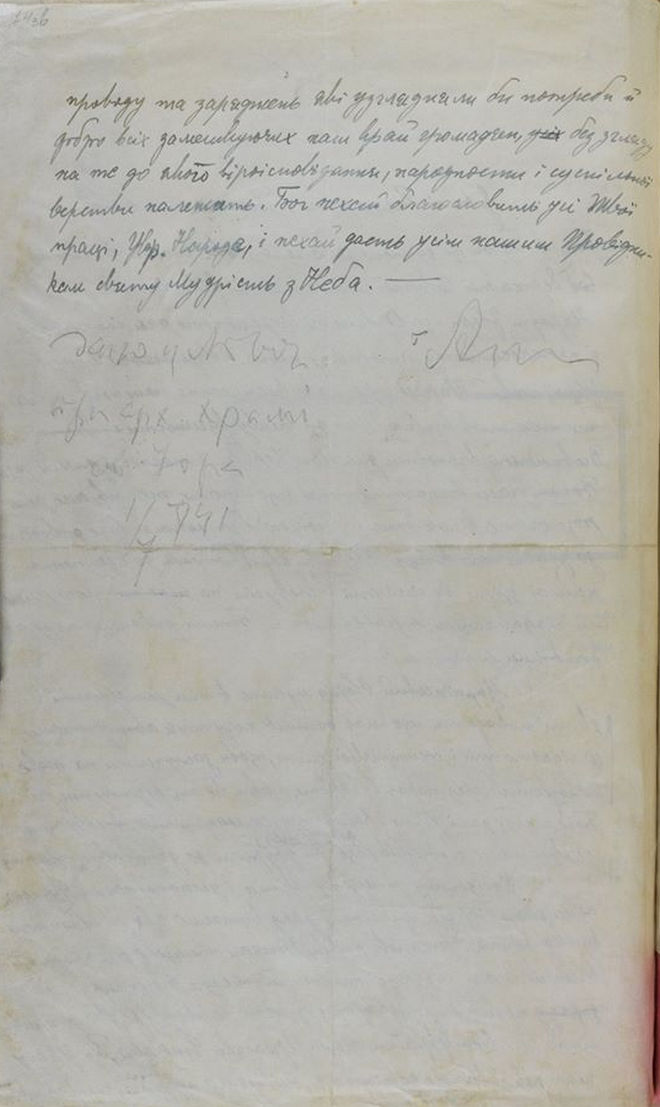 проводу та заряджень які узгляднали би потреби й
добро всіх замешкуючих наш край громадян, без згляду
на те до якого віроісповідання, народности і суспільної
верстви належать. Бог нехай благословить усі Твої
праці, Укр. Народе, і нехай дасть усім нашим Провідни-
кам святу Мудрість з Неба. —
Дано у Львові
при арх. храмі
Юра
1/7 941